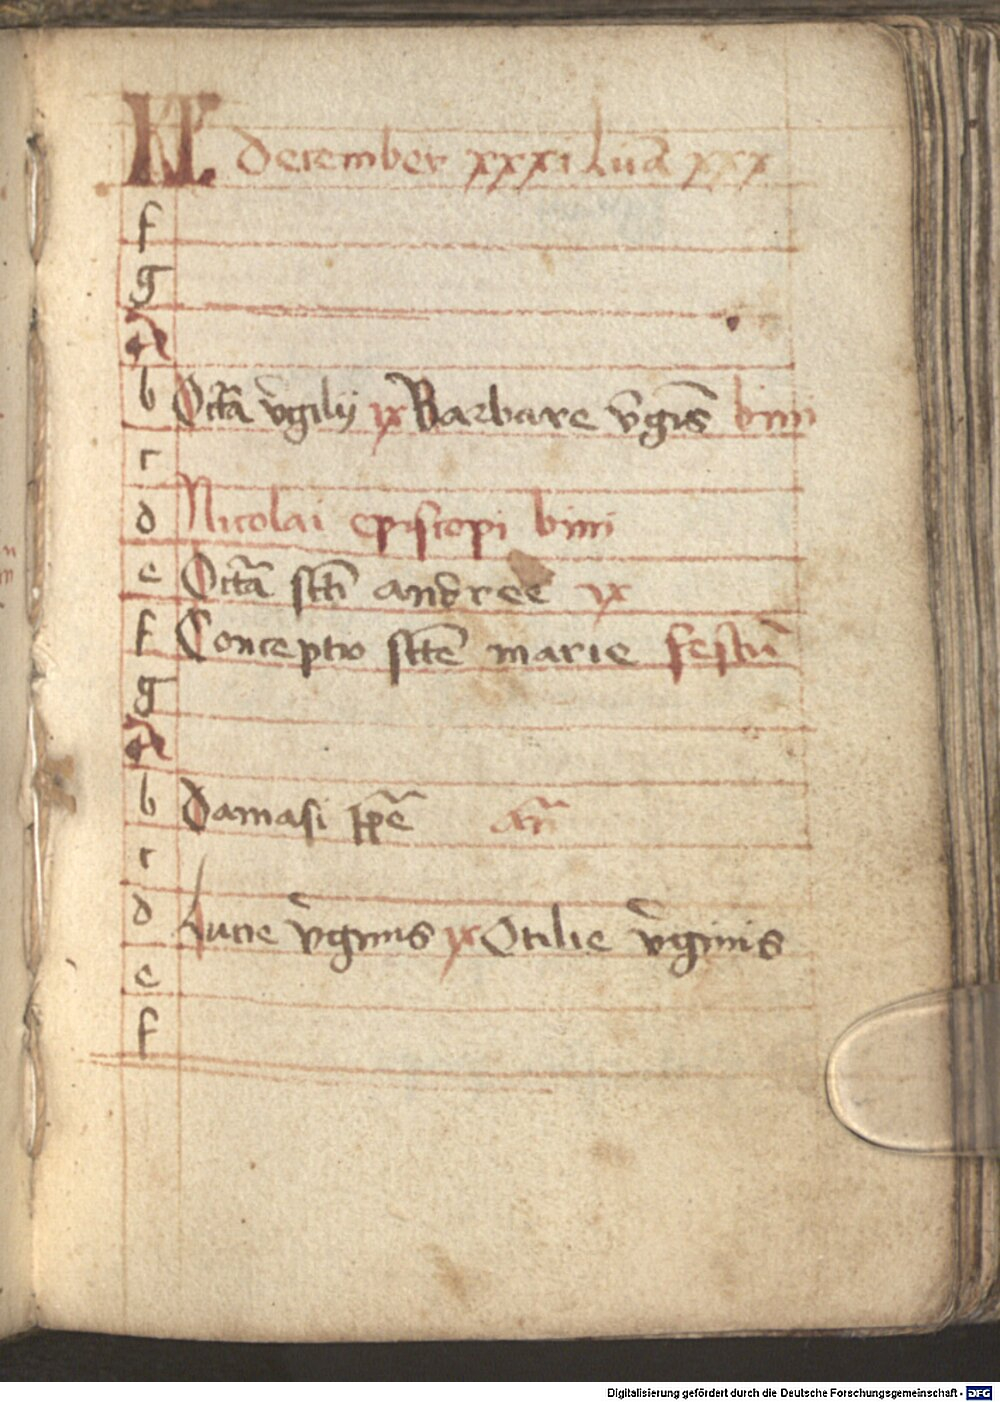 KL december xxxi luā xxx
f
g
A
b Octā v̄gilij ix Barbare v̄gīs biīi
c
d Nicolai episcopi biīi
e Octā sctī andree ix
f Conceptio sctē marie festū
g
A
b damasi ꝑpē añ
c
d lucie v̄ginis ix Otilie v̄ginis
e
f
Digitalisierung gefördert durch die Deutsche Forschungsgemeinschaft - DFG